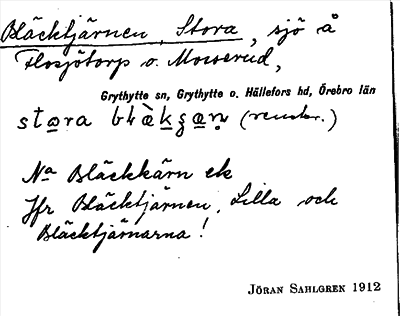 Bläcktjärnen, Stora, sjö å
Flosjötorp o. Mosserud,
Grythytte sn, Grythytte o. Hällefors hd, Örebro län
stora
Na Bläckkärn ek
Jfr Bläcktjärnen, Lilla och
Bläcktjärnarna!
JÖRAN SAHLGREN 1912